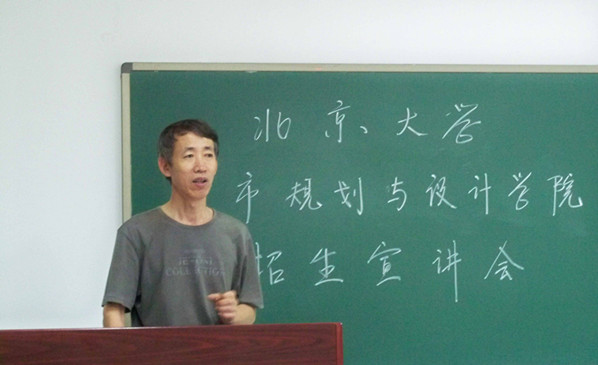 北京大学
市规划与设计学院
招生宣讲会